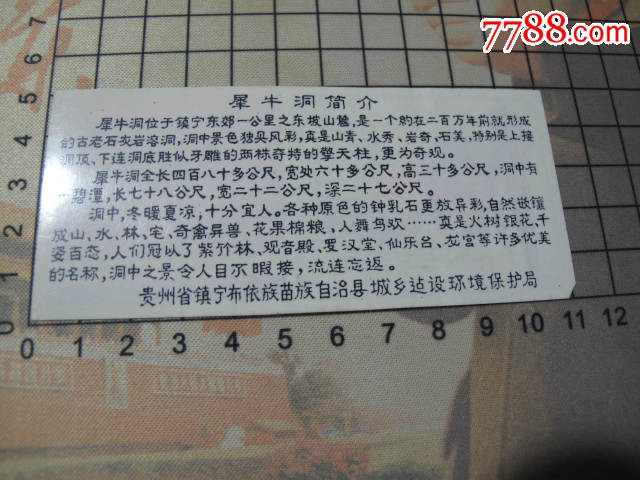 7788.com
中国收藏热线
犀牛洞简介
犀牛洞位于镇宁东郊一公里之东坡山麓,是一个约在二百万年前就形成
的古老石灰岩溶洞,洞中景色独具风彩,真是山青、水秀、岩奇、石美,特别是上接
洞顶、下连洞底胜似牙雕的两栋奇特的擎天柱,更为奇观。
犀牛洞全长四百八十多公尺,宽处六十多公尺,高三十多公尺,洞中有
一碧潭,长七十八公尺,宽二十二公尺,深二十七公尺。
洞中,冬暖夏凉,十分宜人。各种原色的钟乳石更放异彩,自然嵌镶
成山、水、林、宅、奇禽异兽、花果棉粮,人舞鸟欢……真是火树银花,千
姿百态,人们冠以了紫竹林、观音殿、罗汉堂、仙乐台、龙宫等许多优美
的名称,洞中之景令人目不暇接,流连忘返。
贵州省镇宁布依族苗族自治县城乡建设环境保护局
7
6
5
4
3
2
1
0
0 1 2 3 4 5 6 7 8 9 10 11 12